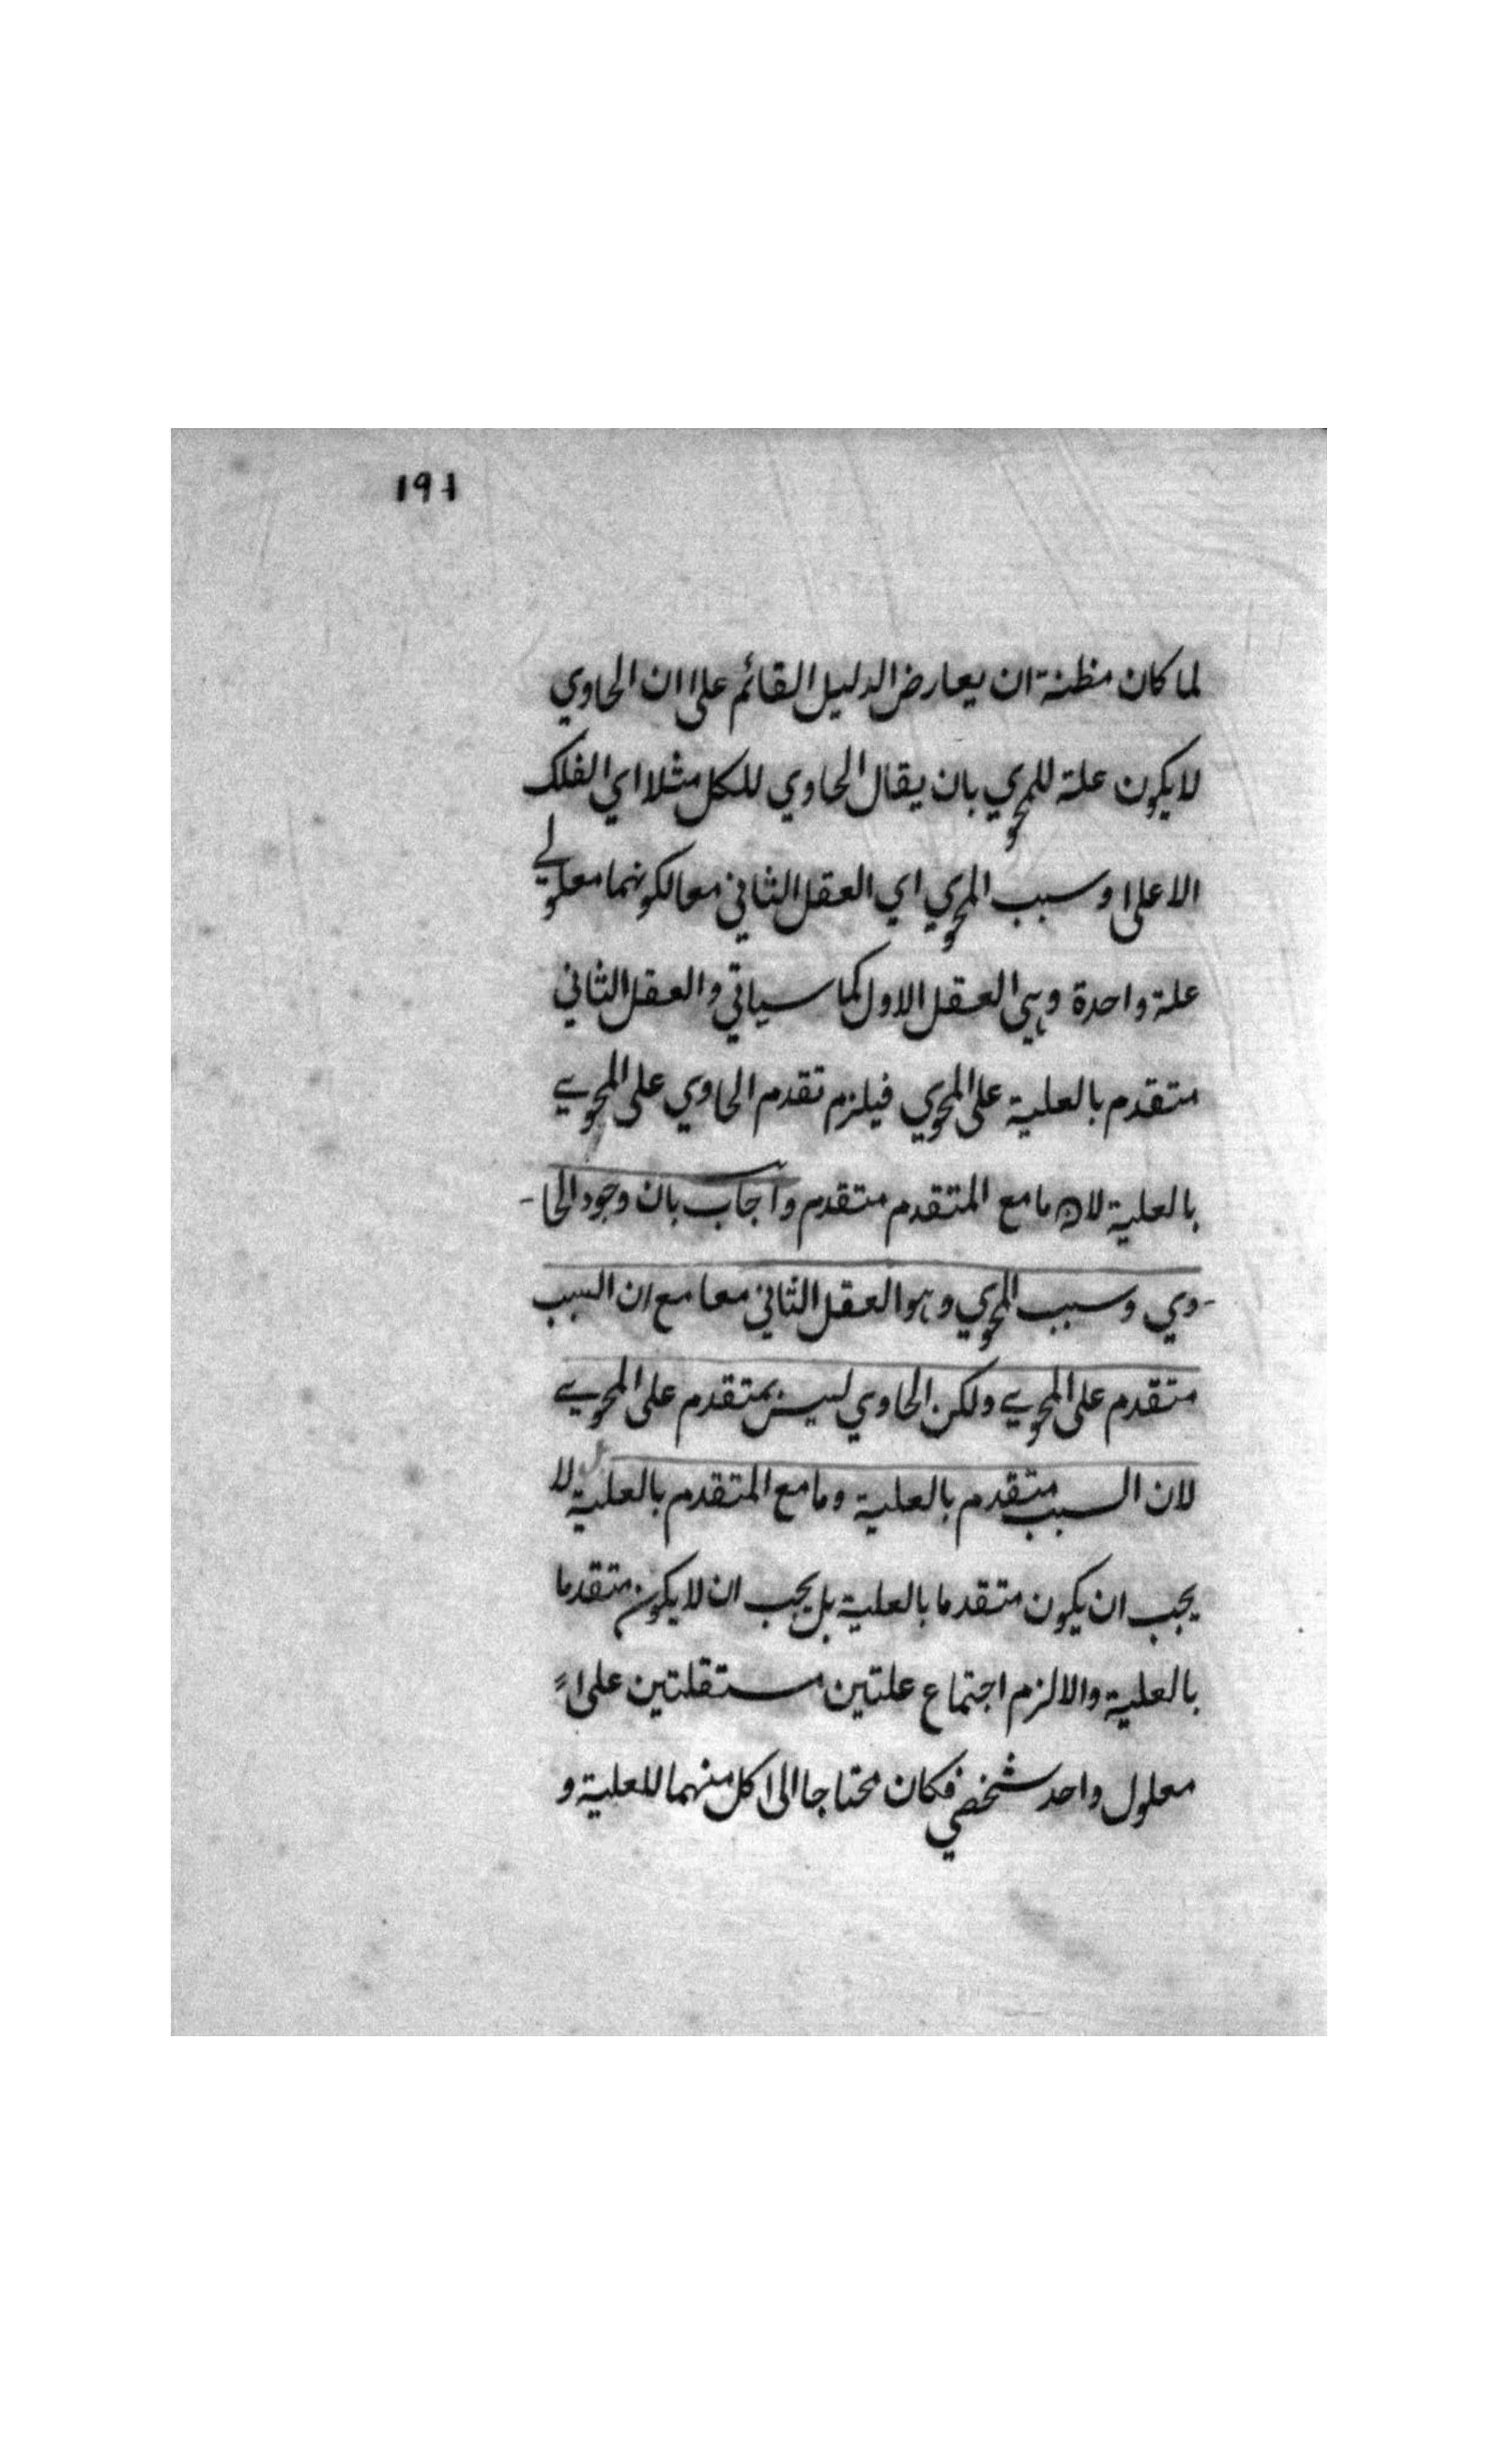 ١٩١
لما كان مظنة ان يعارض الدليل القائم على ان الحاوي
لا يكون علة للمحوي بان يقال الحاوي للكل مثلا اي الفلك
الاعلى وسبب المحوي اي العقل الثاني معا لكونهما معلولي
علة واحدة وهي العقل الاول كما سياتي والعقل الثاني
متقدم بالعلية على المحوي فيلزم تقدم الحاوي على المحوي
بالعلية لان ما مع المتقدم متقدم واجاب بان وجود الحا-
-وي وسبب المحوي وهو العقل الثاني معا مع ان السبب
متقدم على المحوي ولكن الحاوي ليس بمتقدم على المحوي
لان السبب متقدم بالعلية وما مع المتقدم بالعلية لا
يجب ان يكون متقدما بالعلية بل يجب ان لا يكون متقدما
بالعلية والا لزم اجتماع علتين مستقلتين على
معلول واحد شخصي فكان محتاجا الى كل منهما للعلية و